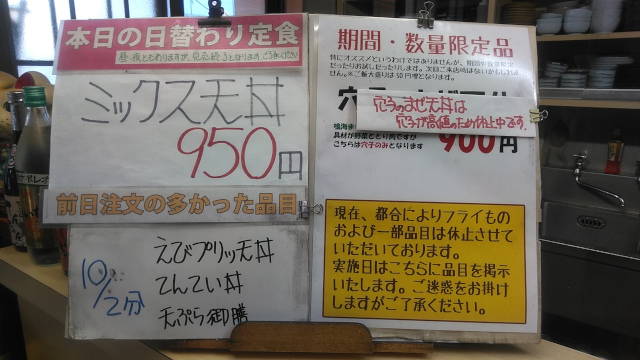 本日の日替わり定食
昼・夜ともありますが、売り切れ終了となります ご了承ください
ミックス天丼
950円
前日注文の多かった品目
10/2分
えびプリッ天丼
てんてい丼
天ぷら御膳
期間・数量限定品
特にオススメというわけではありませんが、期間や数量限定
だったりお試しだったりします。次回ご来店時はないかもしれま
せん。※ご飯大盛りは50円増となります。
穴子のまぜ天丼は
穴子が高値のため休止中です。
具材が野菜とどり肉ですが
こちらは穴子のみとなります
900円
現在、都合によりフライもの
および一部品目は休止させて
いただいております。
実施日はこちらに品目を掲示
いたします。ご迷惑をお掛け
しますがご了承ください。